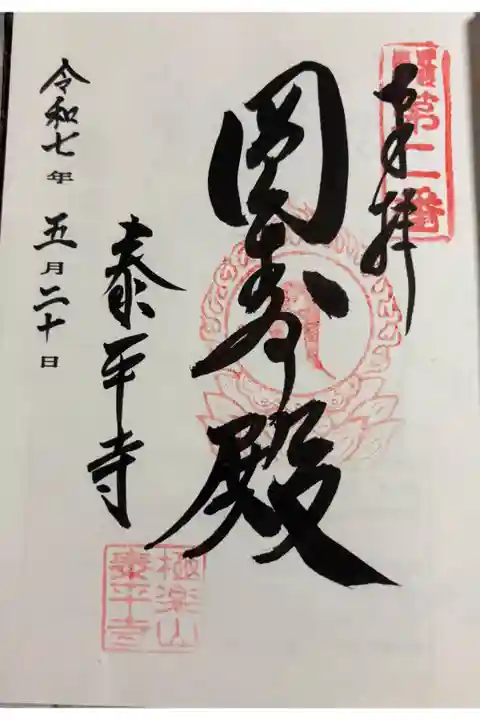 第二番
奉拝
圓寿殿
泰平寺
極楽山
泰平寺
令和七年 五月二十日